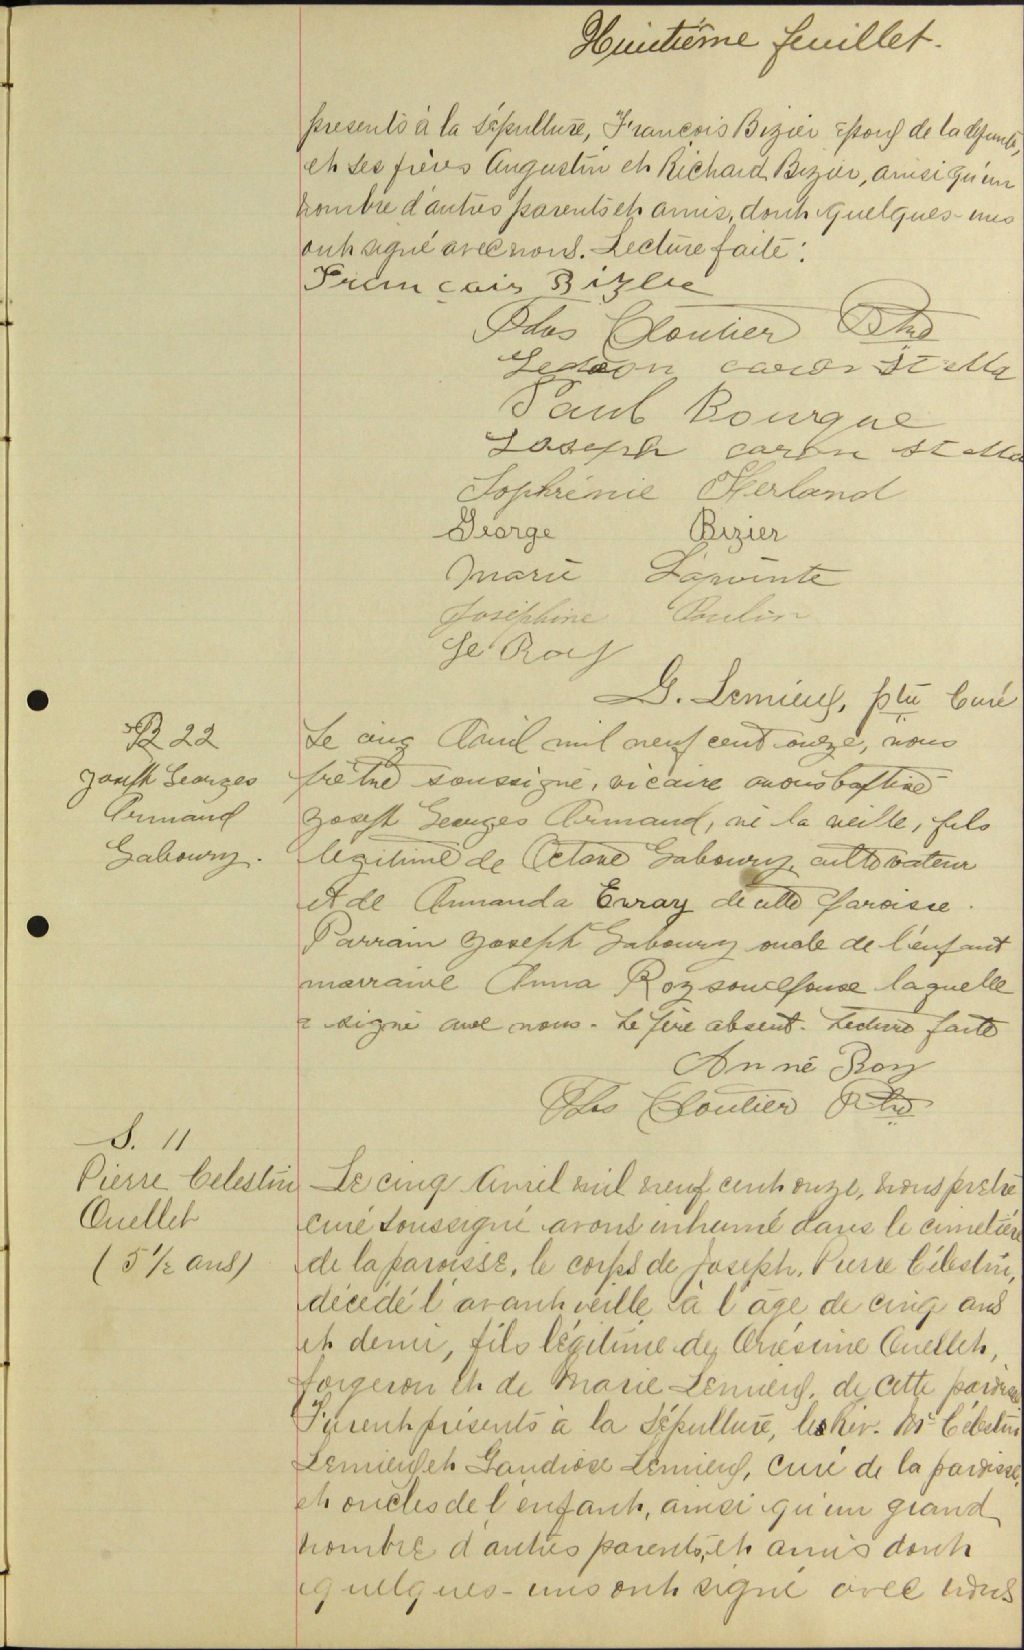 Huitième feuillet.
présents à la sépulture, François Bizier époux de la défunte,
et ses frères Augustin et Richard Bizier, ainsi qu'un
nombre d'autres parents et amis, dont quelques-uns
ont signé avec nous. Lecture faite:
François Bizier
Cloutier Ptre
caron St
Paul Bourque
Joseph caron St
Sophrénie
George Bizier
Marie Lapointe
Joséphine Poulin
Roy
G. Lemieux, ptre Curé
B 22
Joseph Georges
Armand
Gaboury.
Le cinq Avril mil neuf cent onze, nous
prêtre soussigné, vicaire avons baptisé
Joseph Georges Armand, né la veille, fils
légitime de Octave Gaboury, cultivateur
et de Amanda de cette paroisse.
Parrain Joseph Gaboury oncle de l'enfant
marraine Anna Roy son épouse laquelle
a signé avec nous. Le père absent. Lecture faite
Anna Roy
Cloutier Ptre
S. 11
Pierre Celestin
Ouellet
(5 1/2 ans)
Le cinq Avril mil neuf cent onze, nous prêtre
curé soussigné avons inhumé dans le cimetière
de la paroisse, le corps de Joseph, Pierre Célestin,
décédé l'avant veille à l'âge de cinq ans
et demi, fils légitime de Onésime Ouellet,
forgeron et de Marie Lemieux, de cette paroisse
Furent présents à la sépulture, les Rév. Mr Célestin
Lemieux et Gaudiose Lemieux, curé de la paroisse,
et oncles de l'enfant, ainsi qu'un grand
nombre d'autres parents, et amis dont
quelques-uns ont signé avec nous